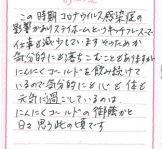 この時期コロナウイルス感染症の
影響がありステイホームというキャッチフレーズで
仕事も減少していますそのためか
気分的にも落ちこむこともありますが
にんにくゴールドを飲み続けて
いるので気分的にも心も体も
元気に過ごしているのは、
にんにくゴールドの御蔭かと
日々思う此の頃です